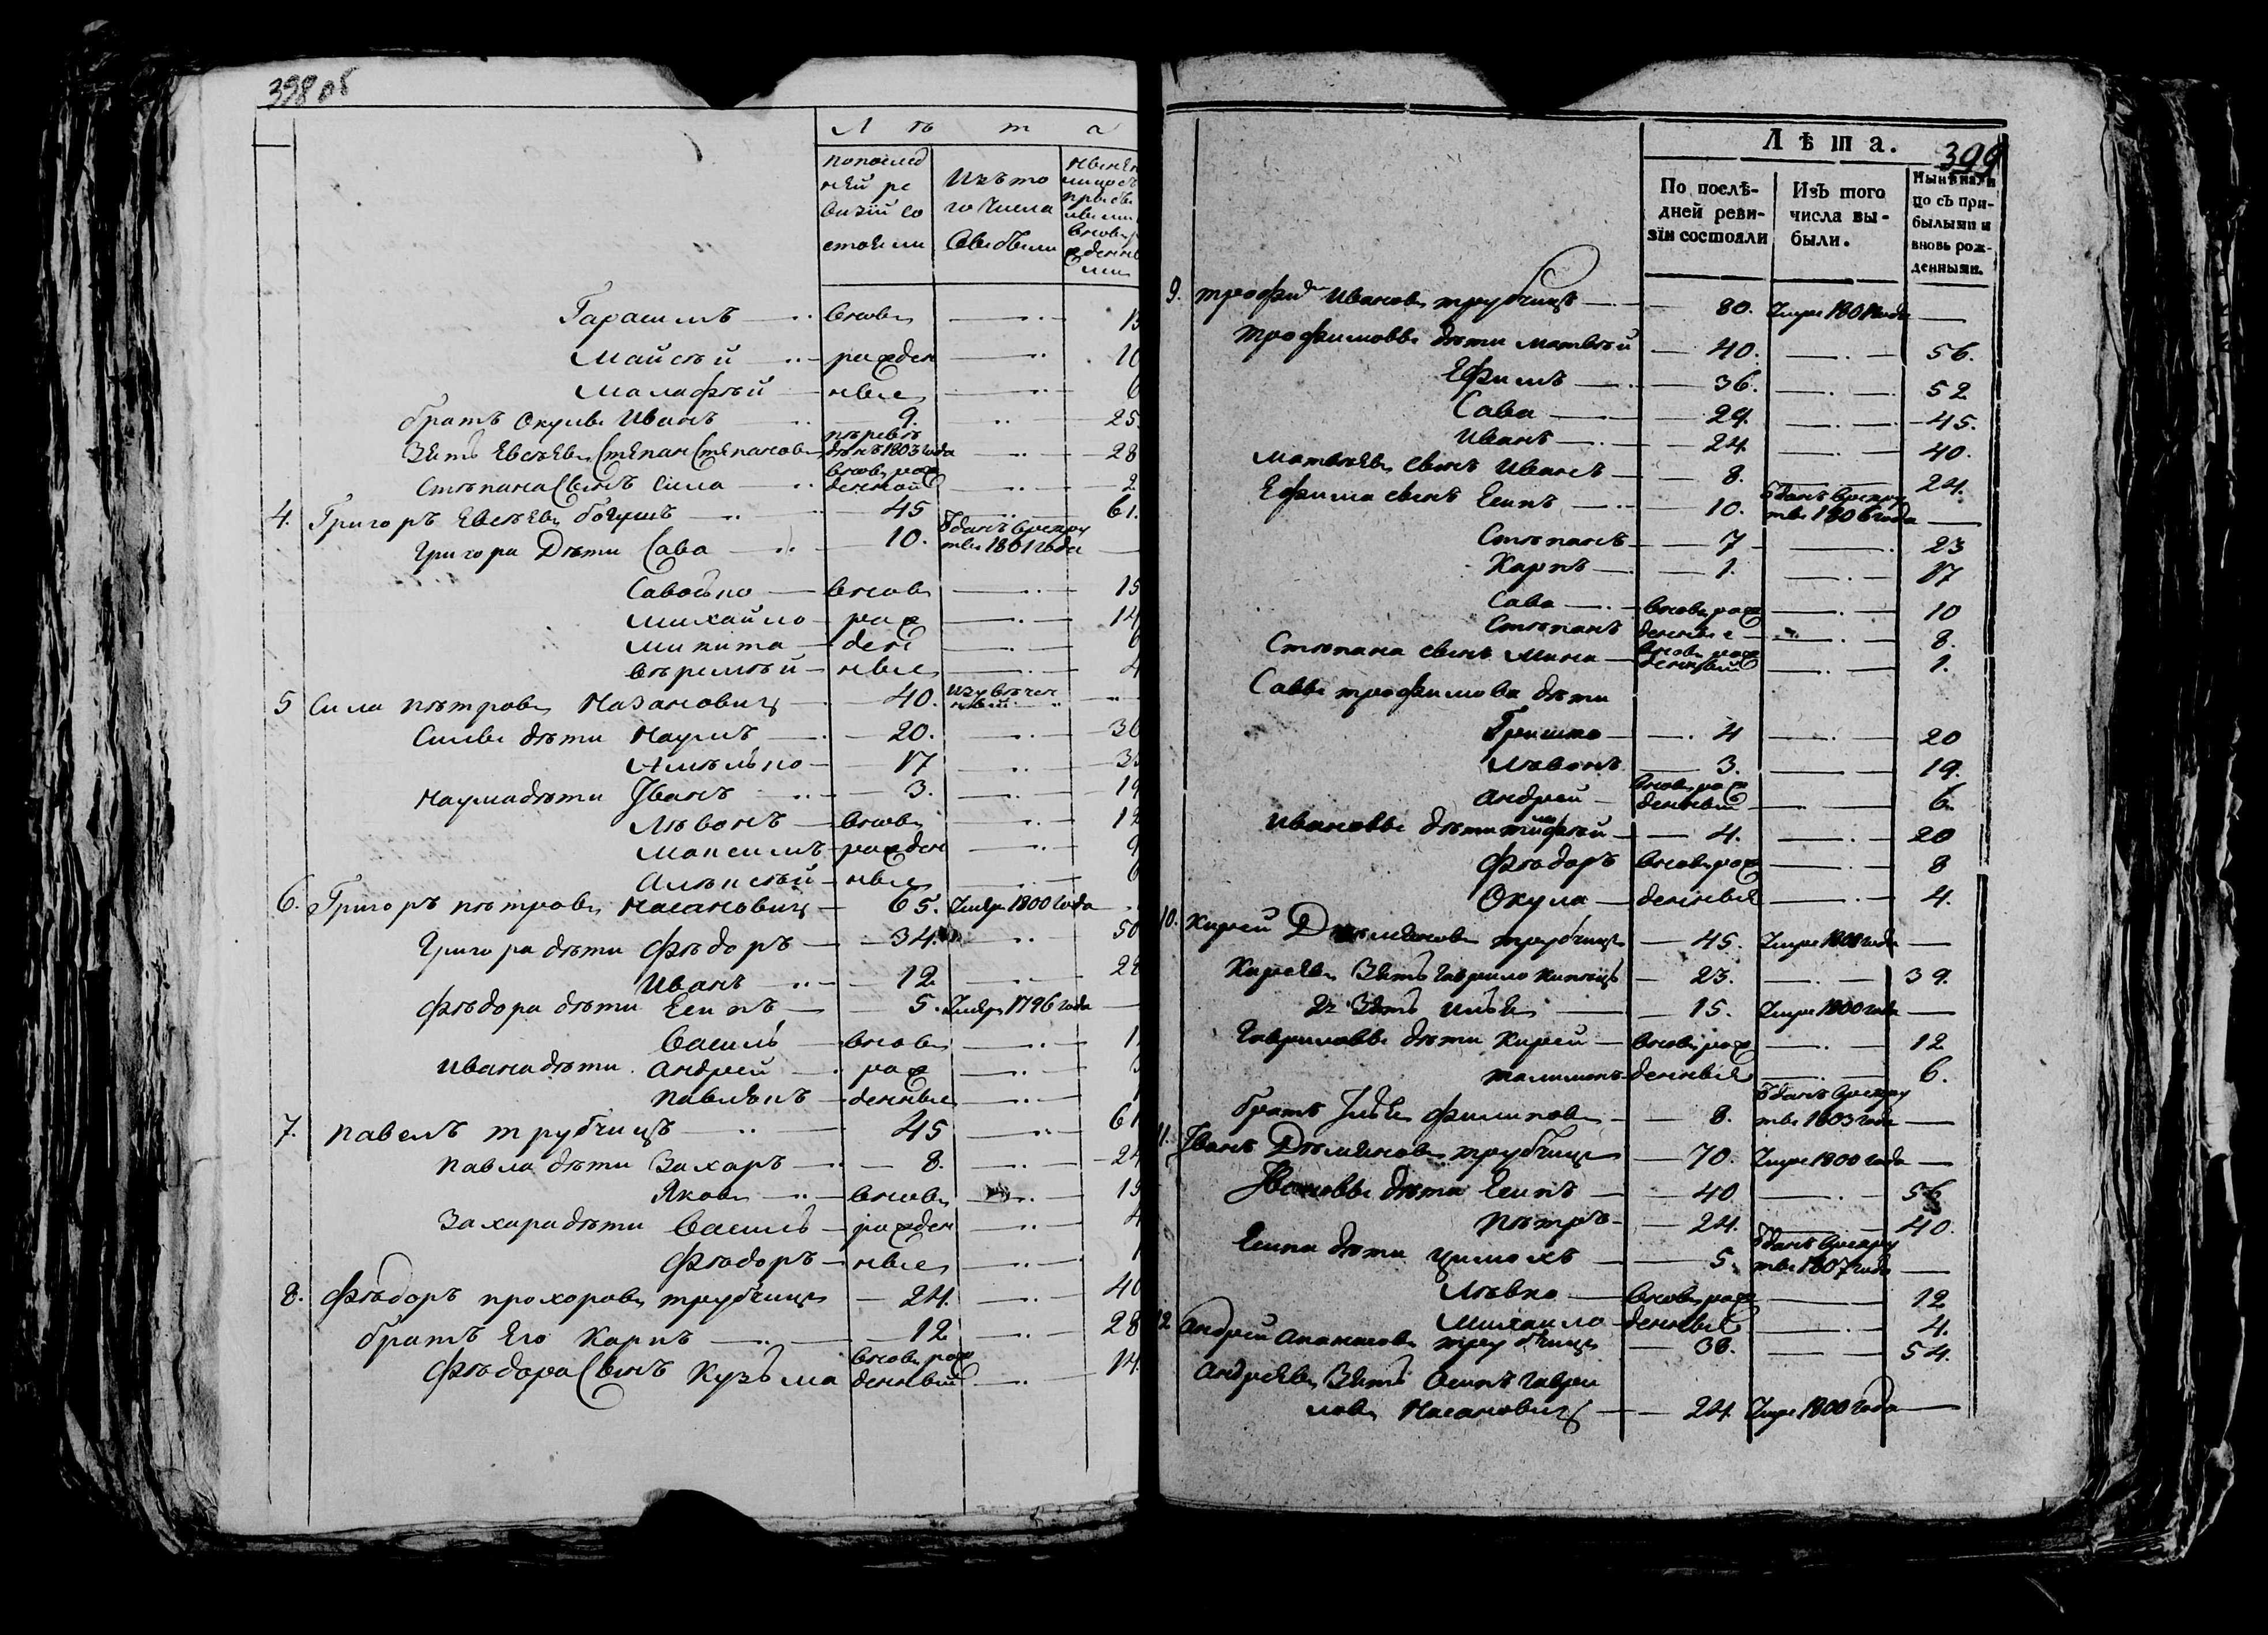 398 об
Л ѣ т а
попослед
ней ре
визіи со
стояли
Изъ то
го числа
выбыли
Гарасимъ вновь
Майсѣй рожден
Малафѣй ные
братъ Окулы Иванъ 9. 25
Зять Евсѣевъ Степан Степановъ пѣревѣ
дѣнъ 1803 года 28
Стѣпана Сынъ Сила вновь рож
денной 2
4. Григоръ Евсѣевъ богушъ 45 61.
Григора Дѣти Сава 10. Отданъ врекру
ты 1801 года
Савостко вновь 15
михайло рож 14
микита ден
ѣремѣй ные 4
5 Сила пѣтровъ Насановичъ 40. изувѣчен
ный
Силы дѣти Наумъ 20. 36
Амѣлько 17 3
Наума дѣти Іванъ 3. 19
Лѣвонъ вновь 12
Максимъ рожден 9
Алѣксѣй ные 6
6. Григоръ пѣтровъ Насановичъ 65. Умѣръ 1800 года
Григора дѣти Фѣдоръ 34. 50
Иванъ 12 28
Фѣдора дѣти Есипъ 5. Умѣръ 1796 года
Василь вновь 1
Ивана дѣти Андрей рож
Павлюкъ денные
7. павелъ трубчицъ 45 61
павла дѣти Захаръ 8. 24
Яковъ вновь 15
Захара дѣти Василь рожден 4
Фѣдоръ ные 1
8. Фѣдоръ прохоровъ трубчицъ 24. 40
братъ Его Карпъ 12 28
Фѣдора Сынъ Кузьма вновь рож
денный 14.
399
Лѣта.
По послѣ-
дней реви-
зіи состояли
Изъ того
числа вы-
были.
Нынѣ на ли
цо съ при-
былыми и
вновь рож-
денными.
9. трофим Ивановъ трубчицъ 80. Умре 1801 года
трофимовы дѣти матвѣй 40. 56.
Ефимъ 36. 52
Сава 29. 45.
Иванъ 24 40.
матвѣевъ сынъ Иванъ 8. 24.
Ефима сынъ Есипъ 10. Отданъ врекру
ты 1806 года
Стѣпанъ 7 23
Карпъ 1. 17
Сава вновь рож 10
Стѣпанъ денные 8.
Стѣпана сынъ Мина вновь рож
денный 1.
Саввы трофимова дѣти
Гришко 4 20
Лѣвонъ 3. 19.
Андрей вновь рож
денный 6.
Ивановы дѣти тимофѣй 4. 20
Фѣдоръ вновь рож 8
Окула денные 4.
10. Кирей Дѣмяновъ трубчицъ 45. Умре 1808 года
Кирѣевъ Зять гаврило 23. 39.
2й Зять Илья 15. Умре 1800 года
Гавриловы дѣти Кирей вновь рож 12
денные 6.
братъ Илья филиповъ 8. Отданъ врекру
ты 1803 года
11. Іванъ Дѣмяновъ трубчицъ 70. Умре 1800 года
Івановы дѣти Есипъ 40 56
Пѣтръ 24. 40.
Есипа дѣти цимохъ 5. Отданъ врекру
ты 1807 года
Лѣвко вновь рож 12
Михаило денные 4.
12 Андрей Апанасовъ трубчицъ 38. 54.
Андрѣевъ Зять Осипъ гаври
ловъ Насановичъ 24. Умре 1800 года